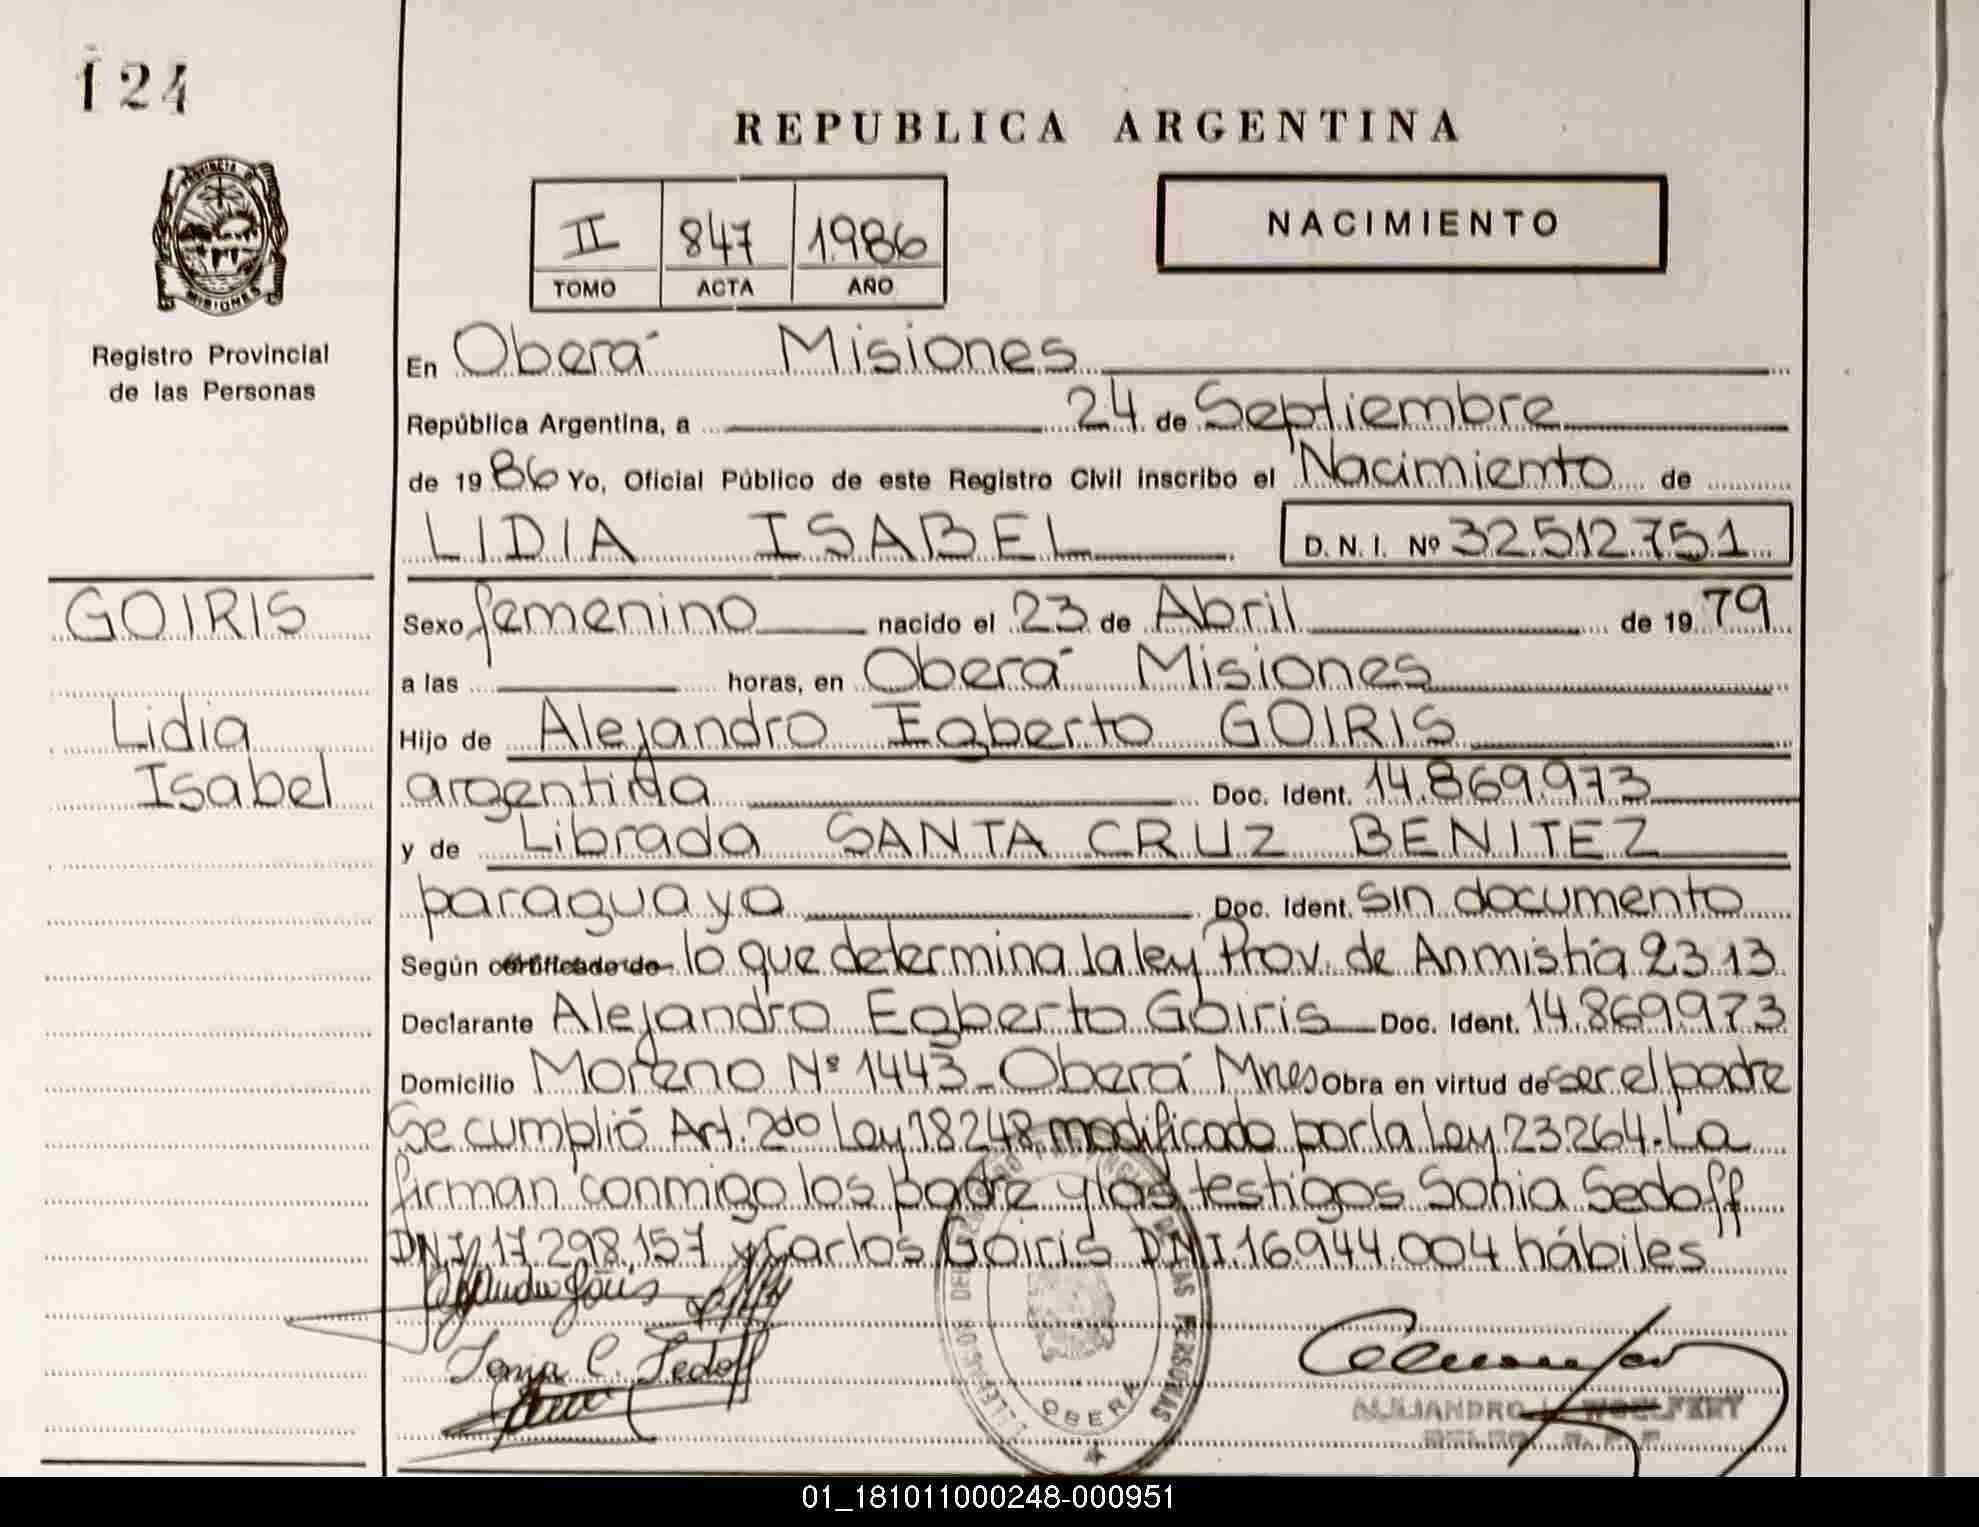 124
REPUBLICA ARGENTINA
II 847 1.986
TOMO ACTA AÑO
NACIMIENTO
PROVINCIA D
MISIONES
Registro Provincial
de las Personas
En Oberá Misiones
República Argentina, a 24 de Septiembre
de 1986 Yo, Oficial Público de este Registro Civil inscribo el Nacimiento de
LIDIA ISABEL D. N. I. Nº 32.512.751
GOIRIS
Lidia
Isabel
Sexo femenino nacido el 23 de Abril de 1979
a las horas, en Oberá Misiones
Hijo de Alejandro Egberto GOIRIS
argentina Doc. Ident. 14.869.973
y de Librada SANTA CRUZ BENITEZ
paraguaya Doc. Ident. Sin documento
Según certificado de lo que determina la ley Prov. de Anmistía 2313
Declarante Alejandro Egberto Goiris Doc. Ident. 14.869.973
Domicilio Moreno Nº 1443 - Oberá Mnes Obra en virtud de ser el padre
Se cumplió Art. 2do Ley 18248 modificado por la Ley 23264. La
firman conmigo los padre y los testigos Sonia Sedoff
DNI 17.298.157 y Carlos Goiris DNI 16.944.004 hábiles
Sonia C. Sedoff
DE LAS PERSONAS
OBERA
ALEJANDRO WOELFERT
01_181011000248-000951